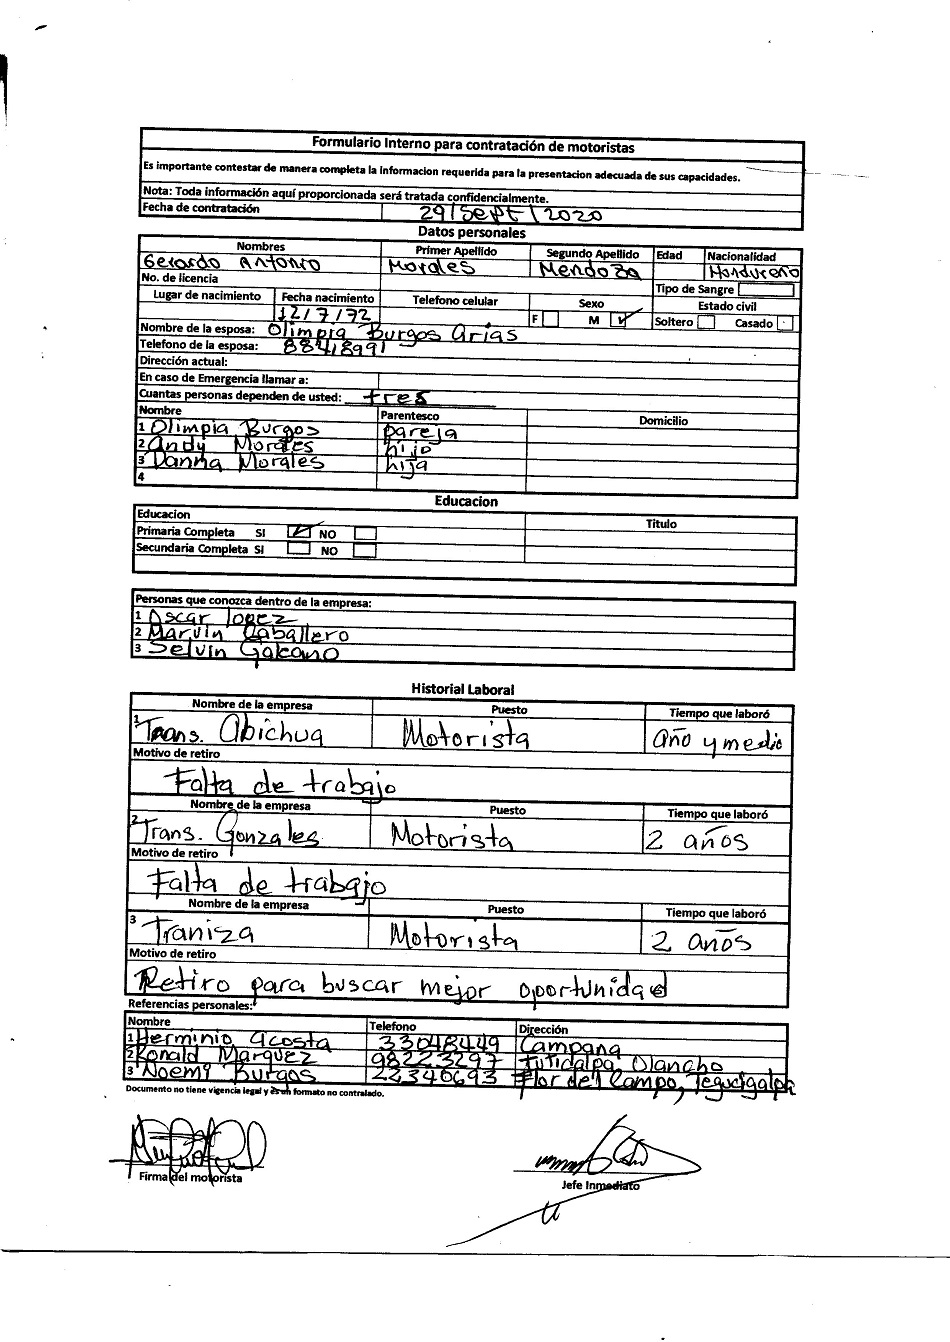 Formulario Interno para contratación de motoristas
Es importante contestar de manera completa la informacion requerida para la presentacion adecuada de sus capacidades.
Nota: Toda información aquí proporcionada será tratada confidencialmente.
Fecha de contratación 29/Sept/2020
Datos personales
Nombres Primer Apellido Segundo Apellido Edad Nacionalidad
Gerardo Antonio Morales Mendoza Hondureño
No. de licencia Tipo de Sangre
Lugar de nacimiento Fecha nacimiento Telefono celular Sexo Estado civil
12/7/72 F M Soltero Casado
Nombre de la esposa: Olimpia Burgos Arias
Telefono de la esposa: 88418991
Dirección actual:
En caso de Emergencia llamar a:
Cuantas personas dependen de usted: tres
Nombre Parentesco Domicilio
1 Olimpia Burgos pareja
2 Andy Morales hijo
3 Danna Morales hija
4
Educacion
Educacion Titulo
Primaria Completa SI NO
Secundaria Completa SI NO
Personas que conozca dentro de la empresa:
1 Oscar Lopez
2 Marvin Caballero
3 Selvin Galeano
Historial Laboral
Nombre de la empresa Puesto Tiempo que laboró
1 Trans. Abichua Motorista año y medio
Motivo de retiro
Falta de trabajo
Nombre de la empresa Puesto Tiempo que laboró
2 Trans. Gonzales Motorista 2 años
Motivo de retiro
Falta de trabajo
Nombre de la empresa Puesto Tiempo que laboró
3 Traniza Motorista 2 años
Motivo de retiro
Retiro para buscar mejor oportunidad
Referencias personales:
Nombre Telefono Dirección
1 Herminio Acosta 33048449 Campana
2 Ronald Marquez 98223297 Jutidalpa Olancho
3 Noemy Burgos 22340693 Flor del Campo, Tegucigalpa
Documento no tiene vigencia legal y es un formato no contralado.
Firma del motorista
Jefe Inmediato